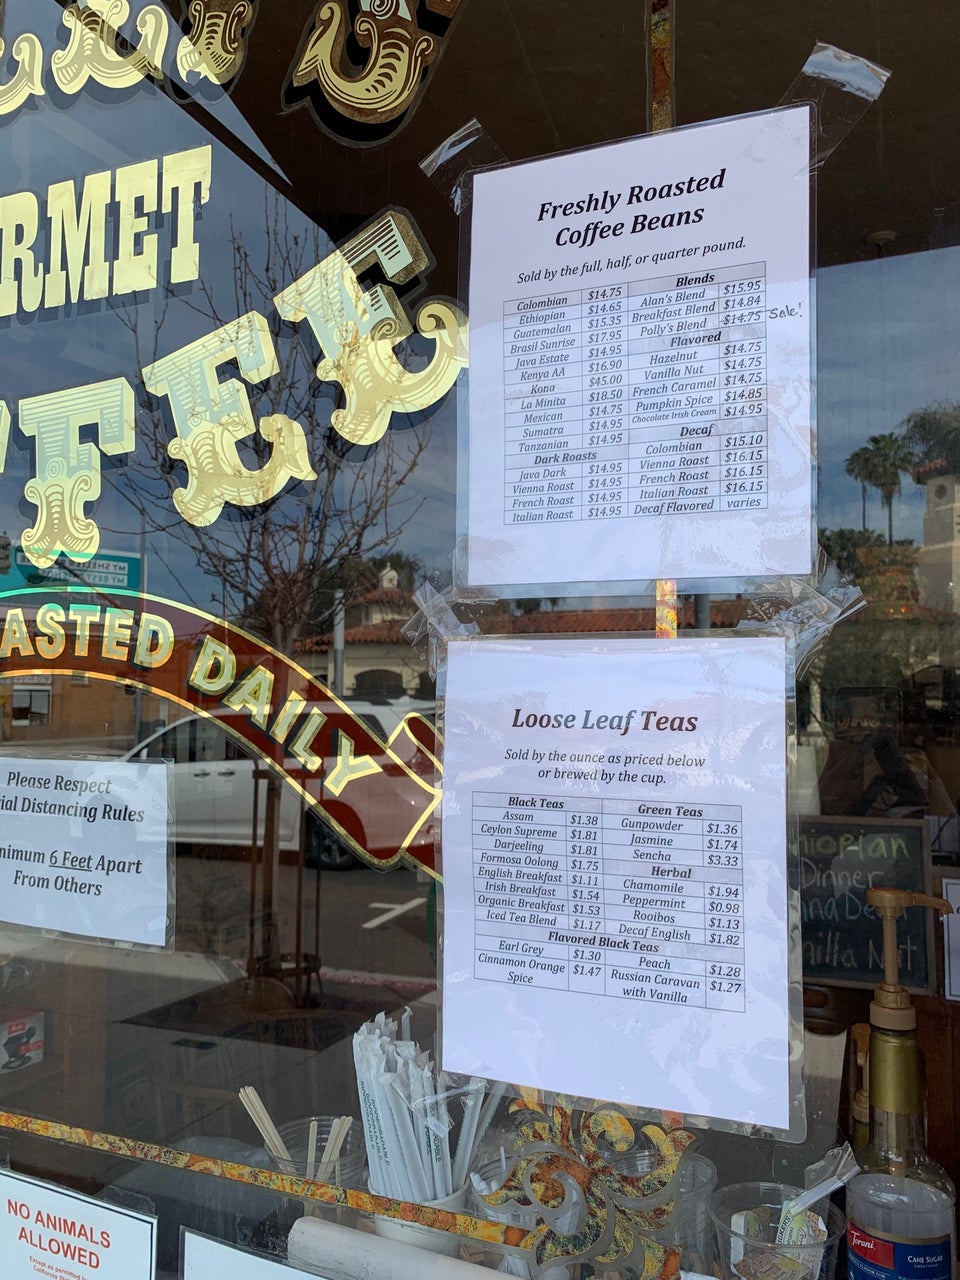 RMET
FFEE
ASTED DAILY
Freshly Roasted
Coffee Beans
Sold by the full, half, or quarter pound.
Colombian $14.75
Ethiopian $14.65
Guatemalan $15.35
Brasil Sunrise $17.95
Java Estate $14.95
Kenya AA $16.90
Kona $45.00
La Minita $18.50
Mexican $14.75
Sumatra $14.95
Tanzanian $14.95
Dark Roasts
Java Dark $14.95
Vienna Roast $14.95
French Roast $14.95
Italian Roast $14.95
Blends
Alan's Blend $15.95
Breakfast Blend $14.84
Polly's Blend $14.75 Sale!
Flavored
Hazelnut $14.75
Vanilla Nut $14.75
French Caramel $14.75
Pumpkin Spice $14.85
Chocolate Irish Cream $14.95
Decaf
Colombian $15.10
Vienna Roast $16.15
French Roast $16.15
Italian Roast $16.15
Decaf Flavored varies
Loose Leaf Teas
Sold by the ounce as priced below
or brewed by the cup.
Black Teas
Assam $1.38
Ceylon Supreme $1.81
Darjeeling $1.81
Formosa Oolong $1.75
English Breakfast $1.11
Irish Breakfast $1.54
Organic Breakfast $1.53
Iced Tea Blend $1.17
Green Teas
Gunpowder $1.36
Jasmine $1.74
Sencha $3.33
Herbal
Chamomile $1.94
Peppermint $0.98
Rooibos $1.13
Decaf English $1.82
Flavored Black Teas
Earl Grey $1.30
Cinnamon Orange $1.47
Spice
Peach $1.28
Russian Caravan $1.27
with Vanilla
Please Respect
ial Distancing Rules
nimum 6 Feet Apart
From Others
hiopian
Dinner
nilla Nut
NO ANIMALS
ALLOWED
Torani
CANE SUGAR
SWEETENER
MY SHELTER
MY BEST